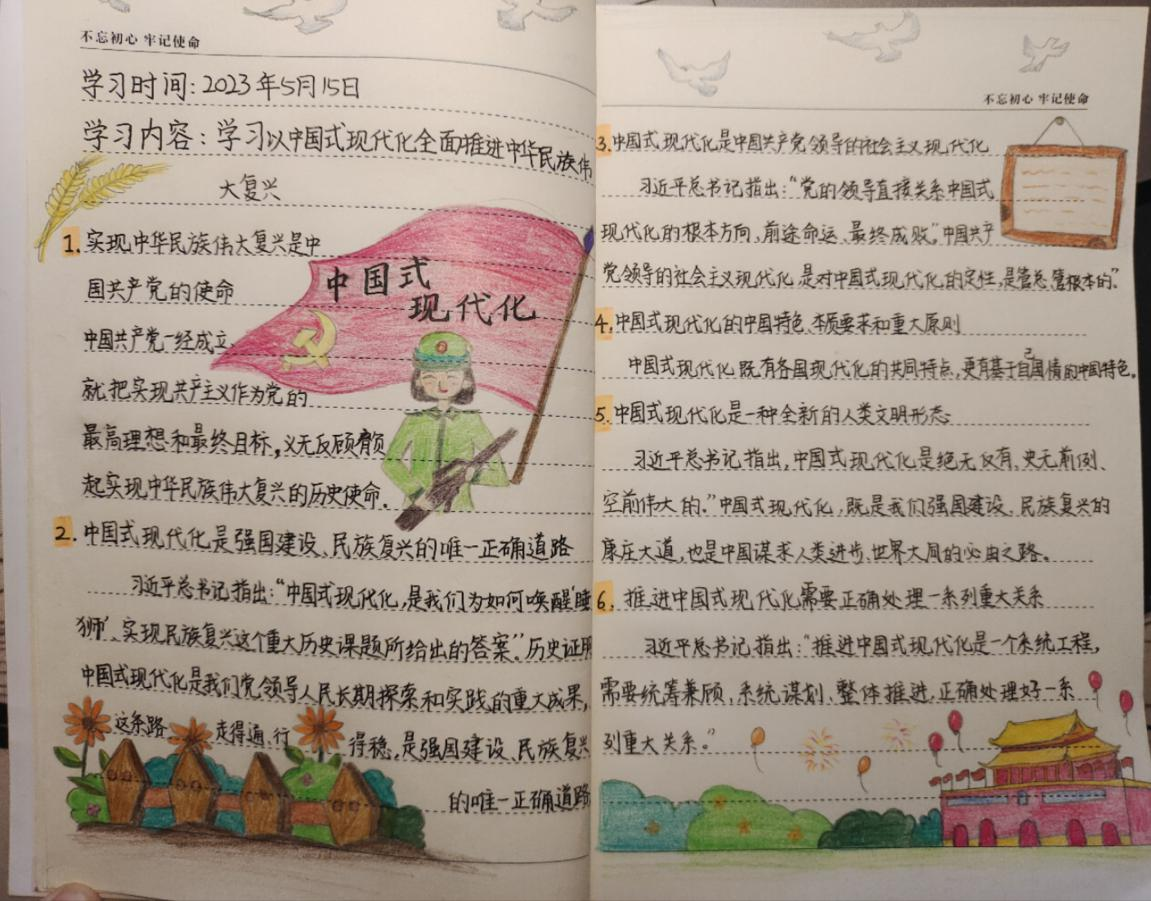 不忘初心 牢记使命
学习时间:2023年5月15日
学习内容:学习以中国式现代化全面推进中华民族伟
大复兴
1.实现中华民族伟大复兴是中
国共产党的使命
中国共产党一经成立
就把实现共产主义作为党的
最高理想和最终目标,义无反顾肩负
起实现中华民族伟大复兴的历史使命.
中国式
现代化
2.中国式现代化是强国建设、民族复兴的唯一正确道路
习近平总书记指出:“中国式现代化,是我们为如何唤醒“睡
狮”、实现民族复兴这个重大历史课题所给出的答案”.历史证明
中国式现代化是我们党领导人民长期探索和实践的重大成果,
这条路 走得通、行 得稳,是强国建设、民族复兴
的唯一正确道路
不忘初心 牢记使命
3.中国式现代化是中国共产党领导的社会主义现代化
习近平总书记指出:“党的领导直接关系中国式
现代化的根本方向、前途命运、最终成败。”中国共产
党领导的社会主义现代化,是对中国式现代化的定性,是管总、管根本的”.
4.中国式现代化的中国特色、本质要求和重大原则
中国式现代化既有各国现代化的共同特点,更有基于自己国情的中国特色。
5.中国式现代化是一种全新的人类文明形态
习近平总书记指出,中国式现代化是绝无仅有、史无前例、
空前伟大的.”中国式现代化,既是我们强国建设、民族复兴的
康庄大道,也是中国谋求人类进步、世界大同的必由之路。
6.推进中国式现代化需要正确处理一系列重大关系
习近平总书记指出:“推进中国式现代化是一个系统工程,
需要统筹兼顾、系统谋划、整体推进,正确处理好一系
列重大关系。”